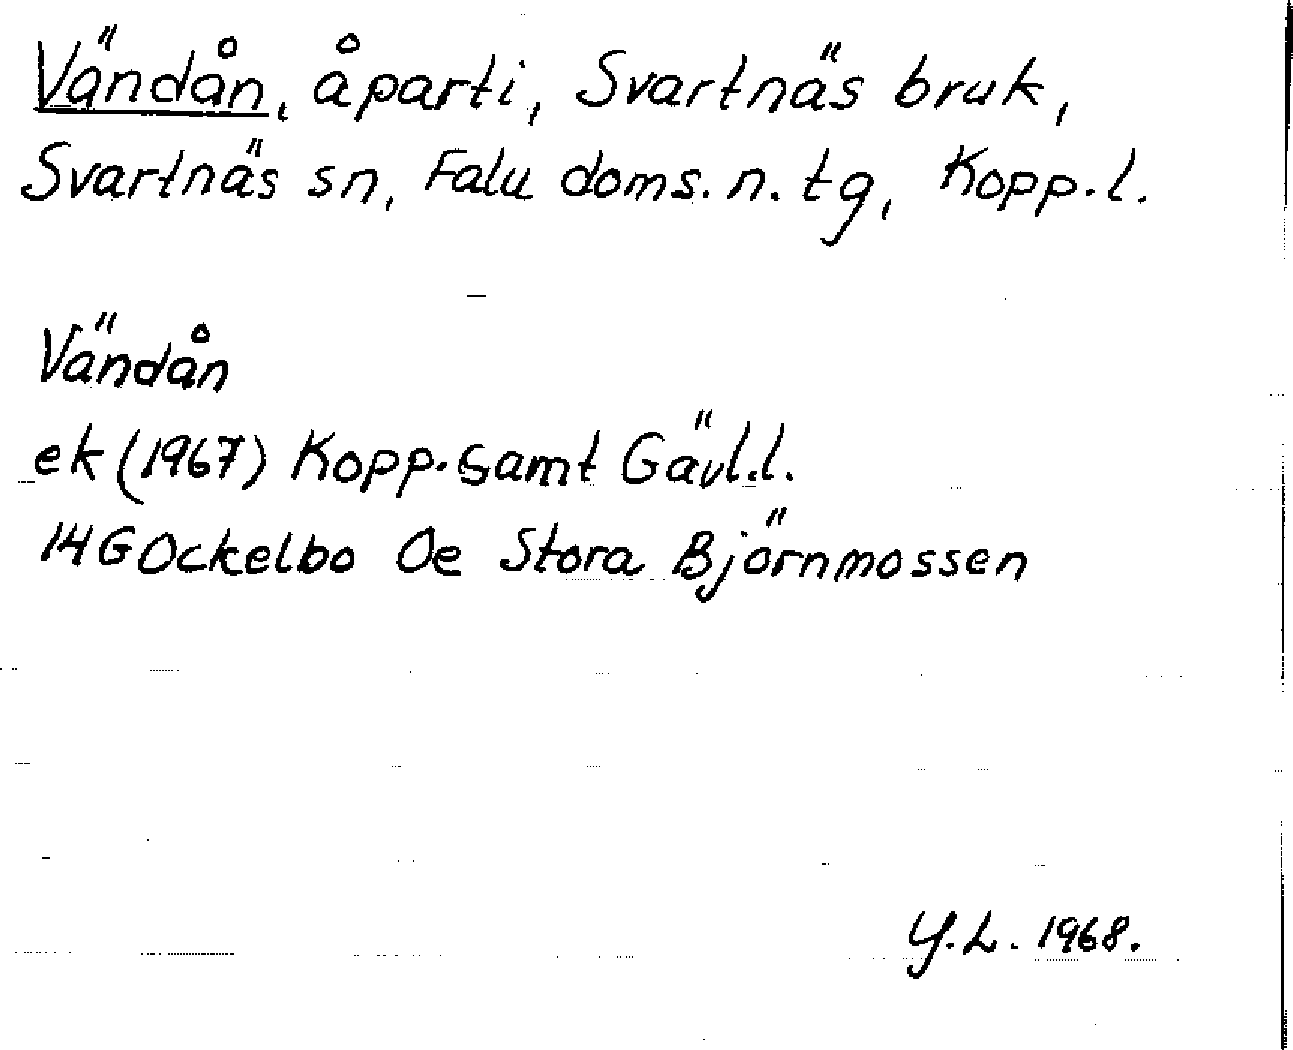 Vändån, åparti, Svartnäs bruk,
Svartnäs sn, Falu doms. n. tg, Kopp. l.
Vändån
ek (1967) Kopp. samt Gävl. l.
14G Ockelbo 0e Stora Björnmossen
Y. L. 1968.